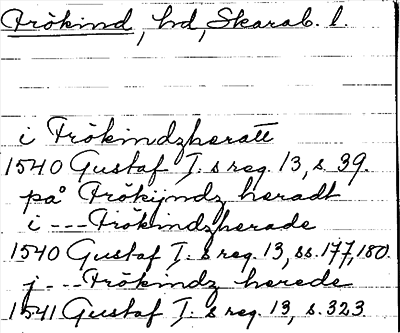 Frökind, hd, Skarab. l.
i Frökindzheratt
1540 Gustaf I. s reg. 13, s. 39.
på Frökijndz heradt
i --- Frökindzherade
1540 Gustaf I. s reg. 13, ss. 177, 180.
j --- Frökindz herede
1541 Gustaf I. s reg. 13, s. 323